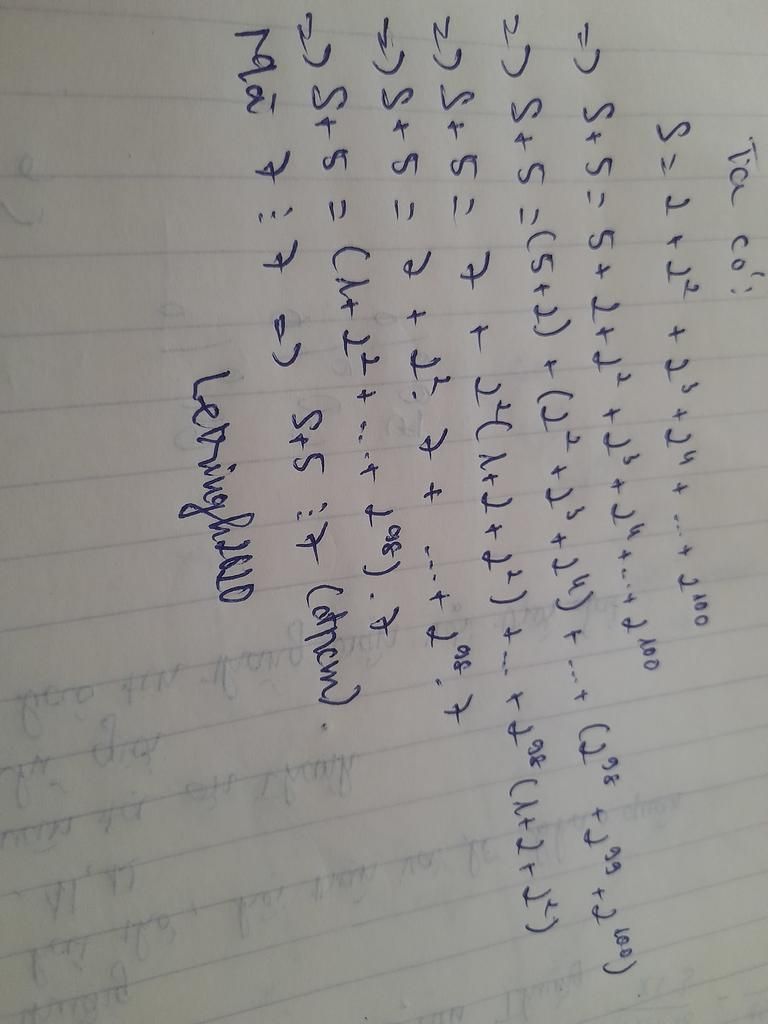 Ta có:
S = 2 + 2² + 2³ + 2⁴ + ... + 2¹⁰⁰
=> S+5 = 5 + 2 + 2² + 2³ + 2⁴ + ... + 2¹⁰⁰
=> S+5 = (5+2) + (2² + 2³ + 2⁴) + ... + (2⁹⁸ + 2⁹⁹ + 2¹⁰⁰)
=> S+5 = 7 + 2²(1+2+2²) + ... + 2⁹⁸(1+2+2²)
=> S+5 = 7 + 2². 7 + ... + 2⁹⁸. 7
=> S+5 = (1+2² + ... + 2⁹⁸) . 7
Mà 7 ⋮ 7 => S+5 ⋮ 7 (đpcm).